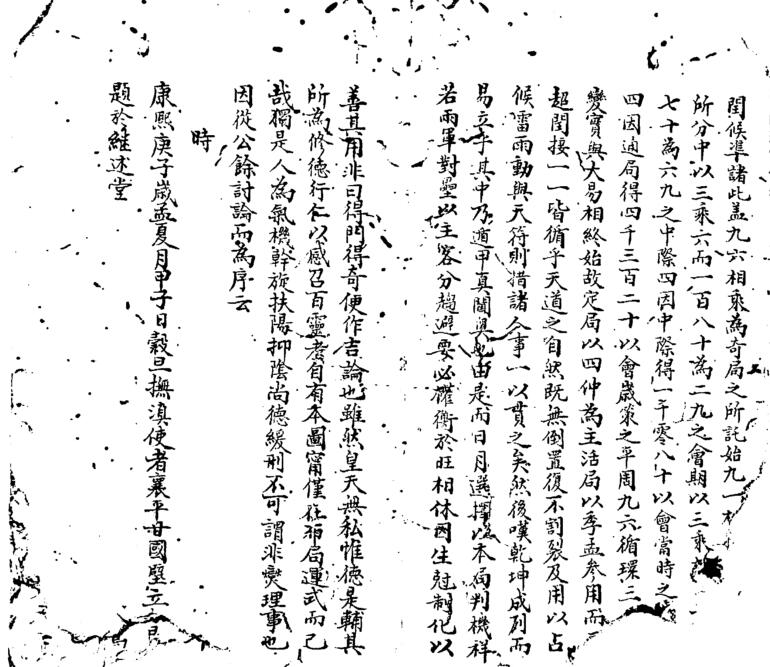 閏候準諸此盖九六相乘為奇局之所託始九一
所分中以三乘六而一百八十為二九之會期以三乘
七十為六九之中際四因中際得一千零八十以會當時之
四因通局得四千三百二十以會歲策之平周九六循環三
變實與大易相終始故定局以四仲為主活局以季孟參用而
超閏接一一皆循乎天道之自然既無倒置復不割裂及用以占
候雷雨動與天符則措諸人事一以貫之矣然後嘆乾坤成列而
易立乎其中乃遁甲真闡奧也由是而日月選擇以本局判機祥
若兩軍對壘以主客分趨避要必權衡於旺相休囚生尅制化以
善其用非曰得門得奇便作吉論也雖然皇天無私惟德是輔其
所為修德行仁以感召百靈者自有本圖甯僅在布局運式而已
哉獨是人為氣機幹旋扶陽抑陰尚德緩刑不可謂非爕理事也
因從公餘討論而為序云
時
康熙庚子歲孟夏月甲子日穀旦撫滇使者襄平甘國璧立
題於維述堂